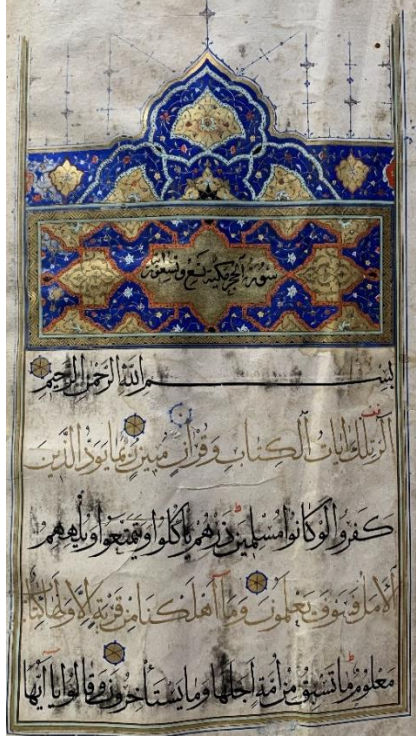 سورة الحجر مكية تسع وتسعون آية
بسم الله الرحمن الرحيم
الر تلك ايات الكتاب وقرآن مبين ربما يود الذين
كفروا لو كانوا مسلمين ذرهم ياكلوا ويتمتعوا ويلههم
الامل فسوف يعلمون وما اهلكنا من قرية الا ولها كتاب
معلوم ما تسبق من امة اجلها وما يستأخرون وقالوا يا ايها